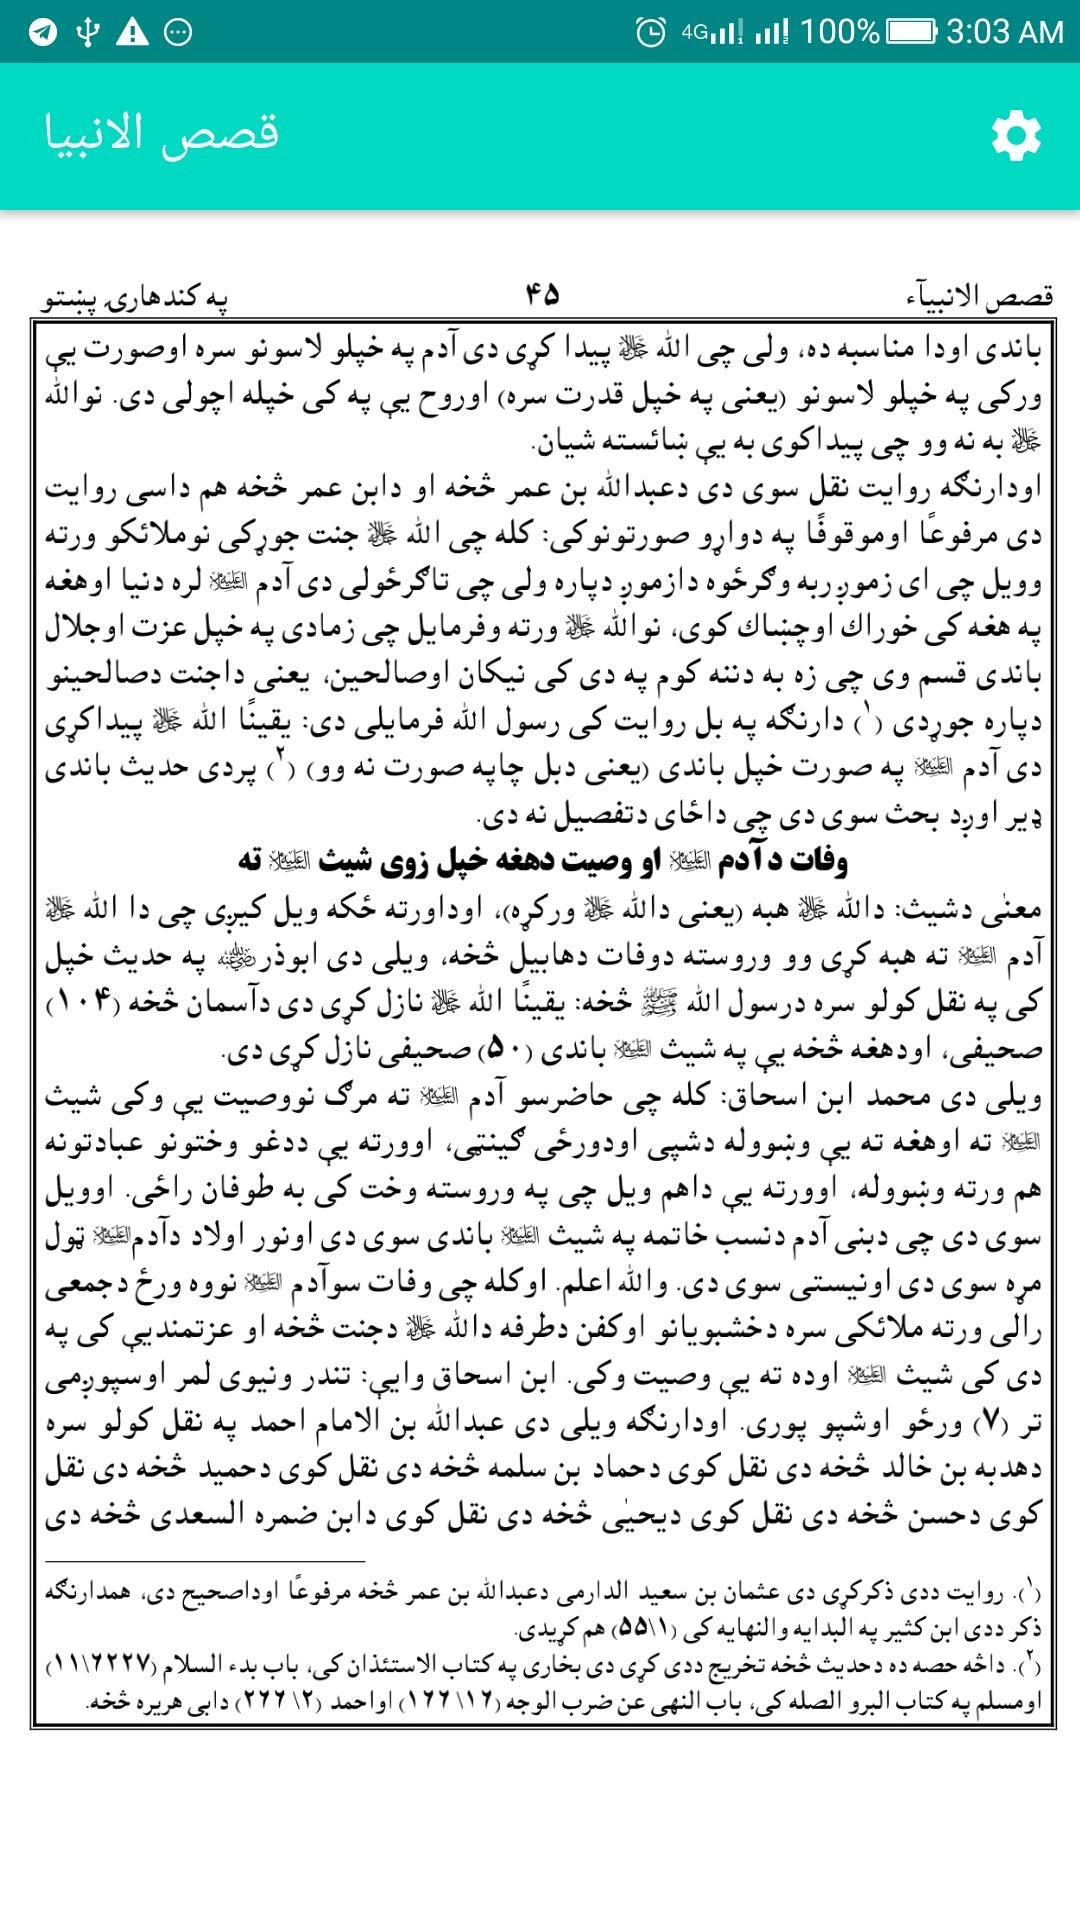 4G 100% 3:03 AM
قصص الانبیا
قصص الانبیآء ۴۵ په کندهارۍ پښتو
باندی اودا مناسبه ده، ولی چی الله ﷻ پیدا کړی دی آدم په خپلو لاسونو سره اوصورت یې
ورکی په خپلو لاسونو (یعنی په خپل قدرت سره) اوروح یې په کی خپله اچولی دی. نوالله
ﷻ به نه وو چی پیداکوی به یې ښائسته شیان.
اودارنګه روایت نقل سوی دی دعبدالله بن عمر څخه او دابن عمر څخه هم داسی روایت
دی مرفوعًا اوموقوفًا په دواړو صورتونوکی: کله چی الله ﷻ جنت جوړکی نوملائکو ورته
وویل چی ای زموږربه وګرځوه دازموږ دپاره ولی چی تاګرځولی دی آدم علیه السلام لره دنیا اوهغه
په هغه کی خوراك اوچښاك کوی، نوالله ﷻ ورته وفرمایل چی زمادی په خپل عزت اوجلال
باندی قسم وی چی زه به دننه کوم په دی کی نیکان اوصالحین، یعنی داجنت دصالحینو
دپاره جوړدی (۱) دارنګه په بل روایت کی رسول الله فرمایلی دی: یقینًا الله ﷻ پیداکړی
دی آدم علیه السلام په صورت خپل باندی (یعنی دبل چاپه صورت نه وو) (۲) پردی حدیث باندی
ډیر اوږد بحث سوی دی چی داځای دتفصیل نه دی.
وفات د آدم علیه السلام او وصیت دهغه خپل زوی شیث علیه السلام ته
معنٰی دشیث: دالله ﷻ هبه (یعنی دالله ﷻ ورکړه)، اوداورته ځکه ویل کیږی چی دا الله ﷻ
آدم علیه السلام ته هبه کړی وو وروسته دوفات دهابیل څخه، ویلی دی ابوذر رضی الله عنه په حدیث خپل
کی په نقل کولو سره درسول الله ﷺ څخه: یقینًا الله ﷻ نازل کړی دی دآسمان څخه (۱۰۴)
صحیفی، اودهغه څخه یې په شیث علیه السلام باندی (۵۰) صحیفی نازل کړی دی.
ویلی دی محمد ابن اسحاق: کله چی حاضرسو آدم علیه السلام ته مرګ نووصیت یې وکی شیث
علیه السلام ته اوهغه ته یې وښووله دشپی اودورځی ګینټی، اوورته یې ددغو وختونو عبادتونه
هم ورته وښووله، اوورته یې داهم ویل چی په وروسته وخت کی به طوفان راځی. اوویل
سوی دی چی دبنی آدم دنسب خاتمه په شیث علیه السلام باندی سوی دی اونور اولاد دآدم علیه السلام ټول
مړه سوی دی اونیستی سوی دی. والله اعلم. اوکله چی وفات سوآدم علیه السلام نووه ورځ دجمعی
راللی ورته ملائکی سره دخشبویانو اوکفن دطرفه دالله ﷻ دجنت څخه او عزتمندیې کی په
دی کی شیث علیه السلام اوده ته یې وصیت وکی. ابن اسحاق وایې: تندر ونیوی لمر اوسپوږمی
تر (۷) ورځو اوشپو پوری. اودارنګه ویلی دی عبدالله بن الامام احمد په نقل کولو سره
دهدبه بن خالد څخه دی نقل کوی دحماد بن سلمه څخه دی نقل کوی دحمید څخه دی نقل
کوی دحسن څخه دی نقل کوی دیحیٰی څخه دی نقل کوی دابن ضمره السعدی څخه دی
(۱). روایت ددی ذکرکړی دی عثمان بن سعید الدارمی دعبدالله بن عمر څخه مرفوعًا اوداصحیح دی، همدارنګه
ذکر ددی ابن کثیر په البدایه والنهایه کی (۱\۵۵) هم کړیدی.
(۲). داڅه حصه ده دحدیث څخه تخریج ددی کړی دی بخاری په کتاب الاستئذان کی، باب بدء السلام (۶۲۲۷\۱۱)
اومسلم په کتاب البرو الصله کی، باب النهی عن ضرب الوجه (۱۶\۱۶۶) اواحمد (۲\۲۶۶) دابی هریره څخه.